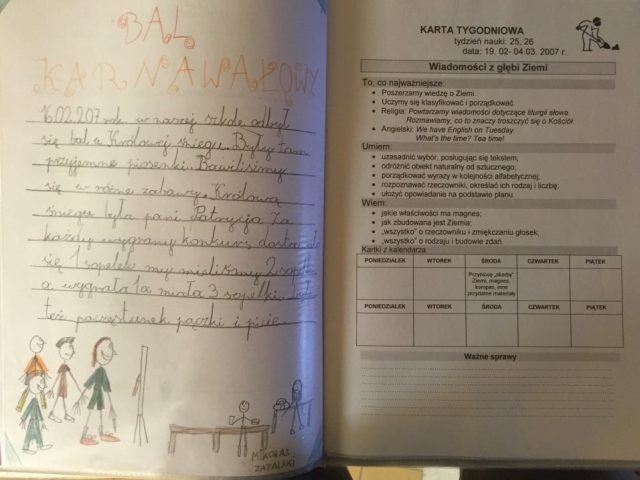 BAL
KARNAWAŁOWY
16.02.207 rok w naszej szkole odbył
się bal u Królowej śniegu. Były tam
przyjemne piosenki. Bawiliśmy
się w różne zabawy. Królową
śniegu była pani Patrycja. Za
każdy wygrany konkurs dostawało
się 1 sopelek my mieliśmy 2 sopelki
a wygrała 1a miała 3 sopelki.
też poczęstunek pączki i picie.
MIKOŁAJ
ZAPALSKI
KARTA TYGODNIOWA
tydzień nauki: 25, 26
data: 19. 02- 04.03. 2007 r.
Wiadomości z głębi Ziemi
To, co najważniejsze:
Poszerzamy wiedzę o Ziemi.
Uczymy się klasyfikować i porządkować.
Religia: Powtarzamy wiadomości dotyczące liturgii słowa.
Rozmawiamy, co to znaczy troszczyć się o Kościół.
Angielski: We have English on Tuesday.
What's the time? Tea time!
Umiem:
uzasadnić wybór, posługując się tekstem;
odróżnić obiekt naturalny od sztucznego;
porządkować wyrazy w kolejności alfabetycznej;
rozpoznawać rzeczowniki, określać ich rodzaj i liczbę;
ułożyć opowiadanie na podstawie planu.
Wiem:
jakie właściwości ma magnes;
jak zbudowana jest Ziemia;
„wszystko” o rzeczowniku i zmiękczaniu głosek;
„wszystko” o rodzaju i budowie zdań.
Kartki z kalendarza
PONIEDZIAŁEK WTOREK ŚRODA CZWARTEK PIĄTEK
Przynoszę „skarby”
Ziemi, magnes,
kompas, inne
przydatne materiały
PONIEDZIAŁEK WTOREK ŚRODA CZWARTEK PIĄTEK
Ważne sprawy